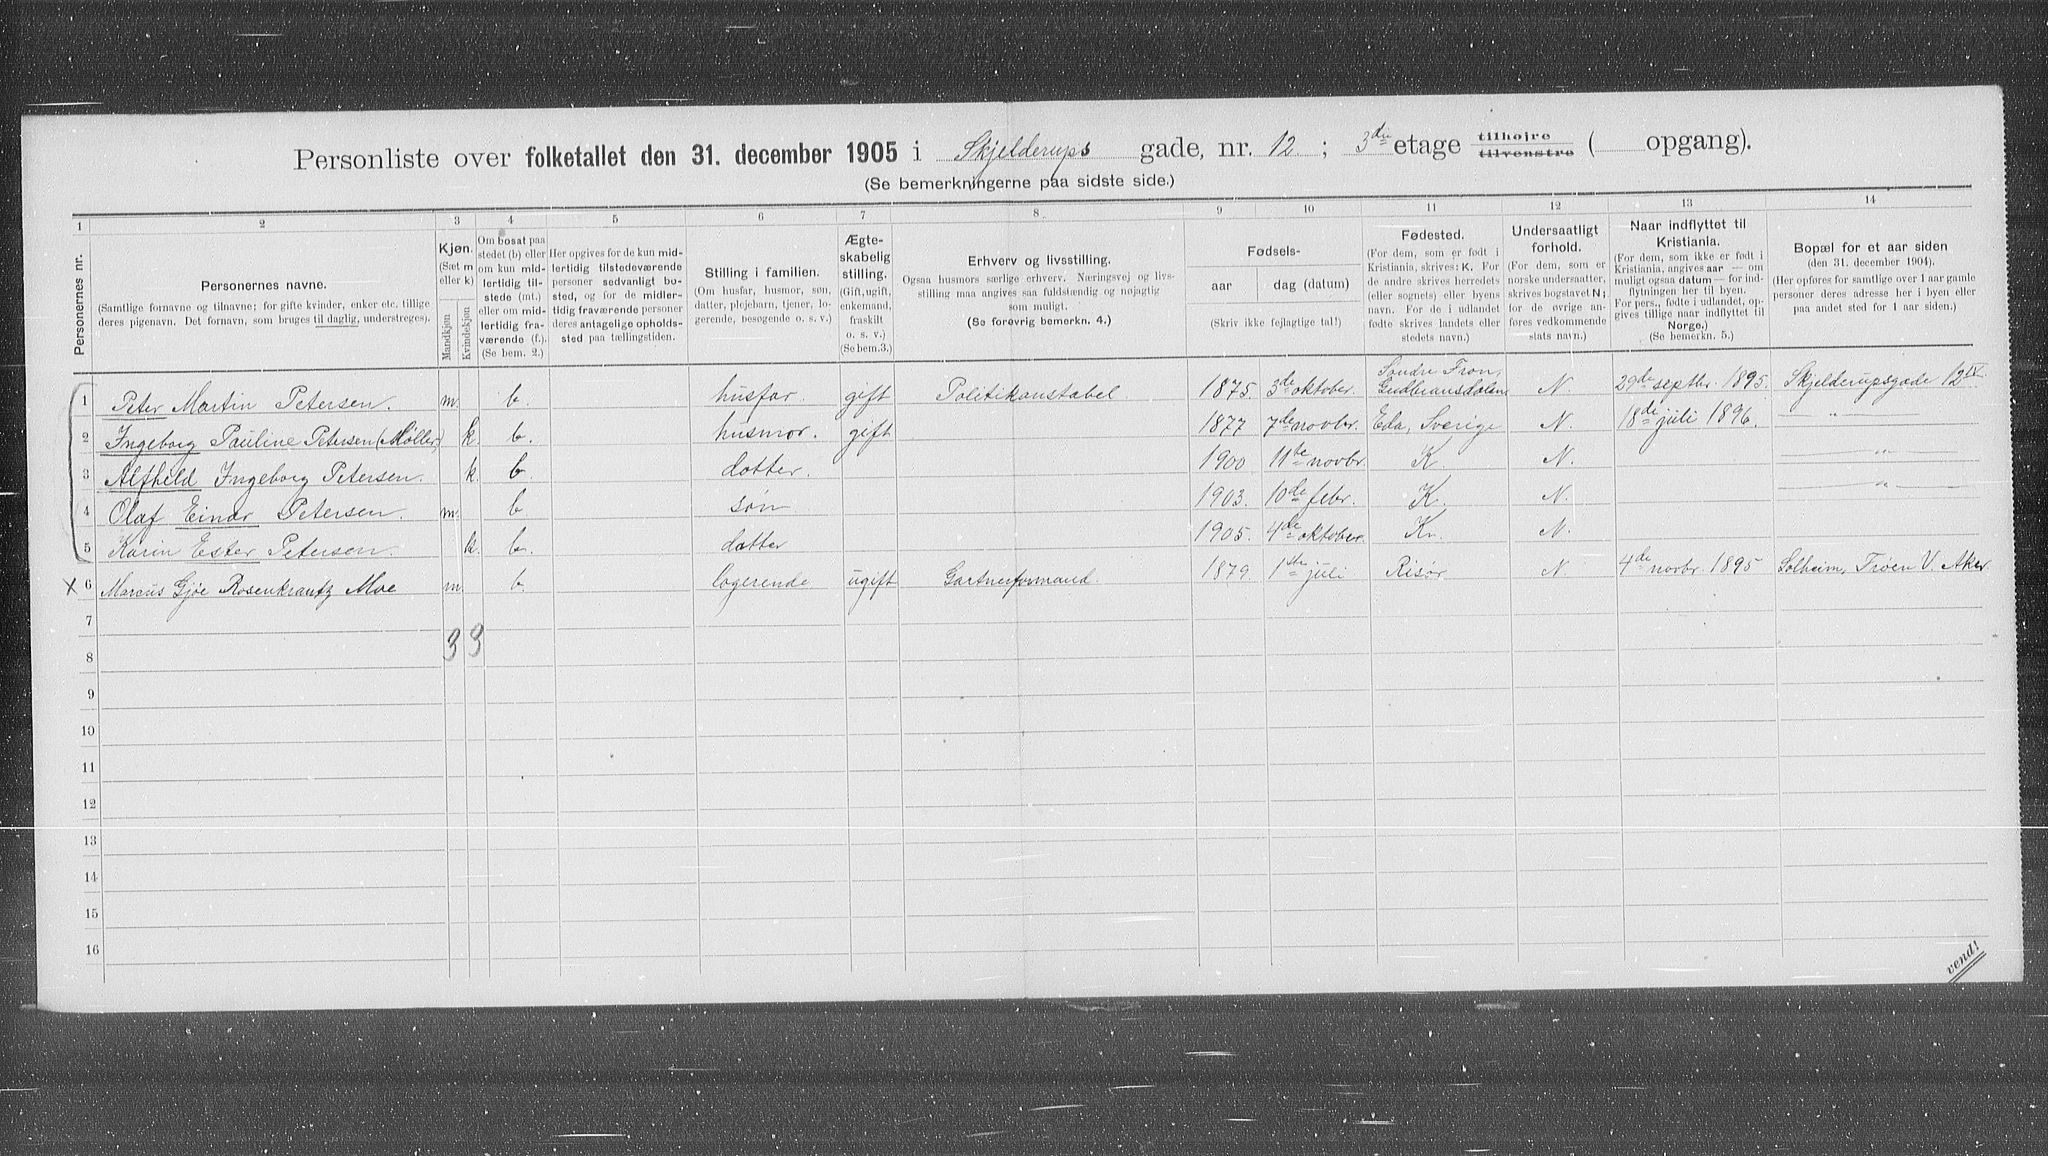 Personliste over folketallet den 31. december 1905 i Skjelderups gade, nr. 12 ; 3die etage tilhøjre tilvenstre ( opgang).
(Se bemerkningerne paa sidste side.)
1 2 3 4 5 6 7 8 9 10 11 12 13 14
Personernes nr.
Personernes navne.
(Samtlige fornavne og tilnavne; for gifte kvinder, enker etc. tillige deres pigenavn. Det fornavn, som bruges til daglig, understreges).
Kjøn.
(Sæt m eller k)
Mandkjøn
Kvindekjøn
Om bosat paa stedet (b) eller om kun midlertidig tilstede (mt.) eller om midlertidig fraværende (f.). (Se bem. 2.)
Her opgives for de kun midlertidig tilstedeværende personer sedvanligt bosted, og for de midlertidig fraværende personer deres antagelige opholdssted paa tællingstiden.
Stilling i familien.
(Om husfar, husmor, søn, datter, plejebarn, tjener, logerende, besøgende o. s. v.)
Ægteskabelig stilling.
(Gift, ugift, enkemand, fraskilt o. s. v.)
(Se bem.3.)
Erhverv og livsstilling.
Ogsaa husmors særlige erhverv. Næringsvej og livsstilling maa angives saa fuldstændig og nøjagtig som muligt.
(Se forøvrig bemerkn. 4.)
Fødsels-
aar
dag (datum)
(Skriv ikke fejlagtige tal!)
Fødested.
(For dem, som er født i Kristiania, skrives: K. For de andre skrives herredets (eller sognets) eller byens navn. For de i udlandet fødte skrives landets eller stedets navn.)
Undersaatligt forhold.
(For dem, som er norske undersaatter, skrives bogstavet N; for de øvrige anføres vedkommende stats navn.)
Naar indflyttet til Kristiania.
(For dem, som ikke er født i Kristiania, angives aar — om muligt ogsaa datum — for indflytningen her til byen. For pers., fødte i udlandet, opgives tillige naar indflyttet til Norge.)
(Se bemerkn. 5.)
Bopæl for et aar siden
(den 31. december 1904).
(Her opføres for samtlige over 1 aar gamle personer deres adresse her i byen eller paa andet sted for 1 aar siden.)
1 Peter Martin Petersen. m. b. husfar. gift Politikonstabel. 1875. 3de oktober. Søndre Fron, Gudbransdalen N 29de septbr. 1895. Skjelderupsgade 12 IV.
2 Ingeborg Pauline Petersen (Møller) k. b. husmor. gift 1877 7de novbr. Eda, Sverige N. 18de juli 1896. — " —
3 Alfhild Ingeborg Petersen. k. b. datter. 1900 11te novbr. K. N. — " —
4 Olaf Einar Petersen. m. b søn 1903. 10de febr. K. N. — " —
5 Karin Ester Petersen. k. b. datter 1905. 4de oktober. K. N.
x 6 Marcus Gjøe Rosenkrantz Moe m. b. logerende ugift Gartnerformand. 1879. 1ste juli Risør N 4de novbr. 1895 Solheim, Trøen V. Aker
7
3 3
8
9
10
11
12
13
14
15
16
vend!